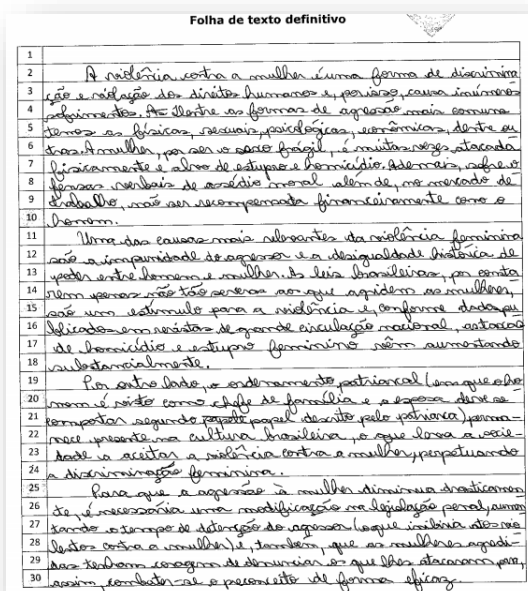 Folha de texto definitivo
1
2 A violência contra a mulher é uma forma de discrimina
3 ção e violação dos direitos humanos e, por isso, causa inúmeros
4 sofrimentos. As Dentre as formas de agressão mais comuns
5 temos as físicas, sexuais, psicológicas, econômicas, dentre ou
6 tras. A mulher, por ser o sexo frágil, é muitas vezes atacada
7 fisicamente e alvo de estupro e homicídio. Ademais, sofre o
8 fensas verbais de assédio moral além de, no mercado de
9 trabalho, não ser recompensada financeiramente como o
10 homem.
11 Uma das causas mais relevantes da violência feminina
12 são a impunidade do agressor e a desigualdade histórica de
13 poder entre homem e mulher. As leis brasileiras, por conta
14 rem penas não tão severas aos que agridem as mulheres,
15 são um estímulo para a violência e, conforme dados pu
16 blicados em revistas de grande circulação nacional, as taxas
17 de homicídio e estupro feminino vêm aumentando
18 substancialmente.
19 Por outro lado, o ordenamento patriarcal (em que o ho
20 mem é visto como chefe de família e a esposa deve se
21 comportar segundo papel descrito pelo patriarca) perma-
22 nece presente na cultura brasileira, o que leva a socie
23 dade a aceitar a violência contra a mulher, perpetuando
24 a discriminação feminina.
25 Para que a agressão à mulher diminua drasticamen
26 te, é necessária uma modificação na legislação penal, aumen
27 tando o tempo de detenção do agressor (o que inibiria atos vio
28 lentos contra a mulher) e, também, que as mulheres agredi-
29 das tenham coragem de denunciar os que lhes atacaram para,
30 assim, combater-se o preconceito de forma eficaz.